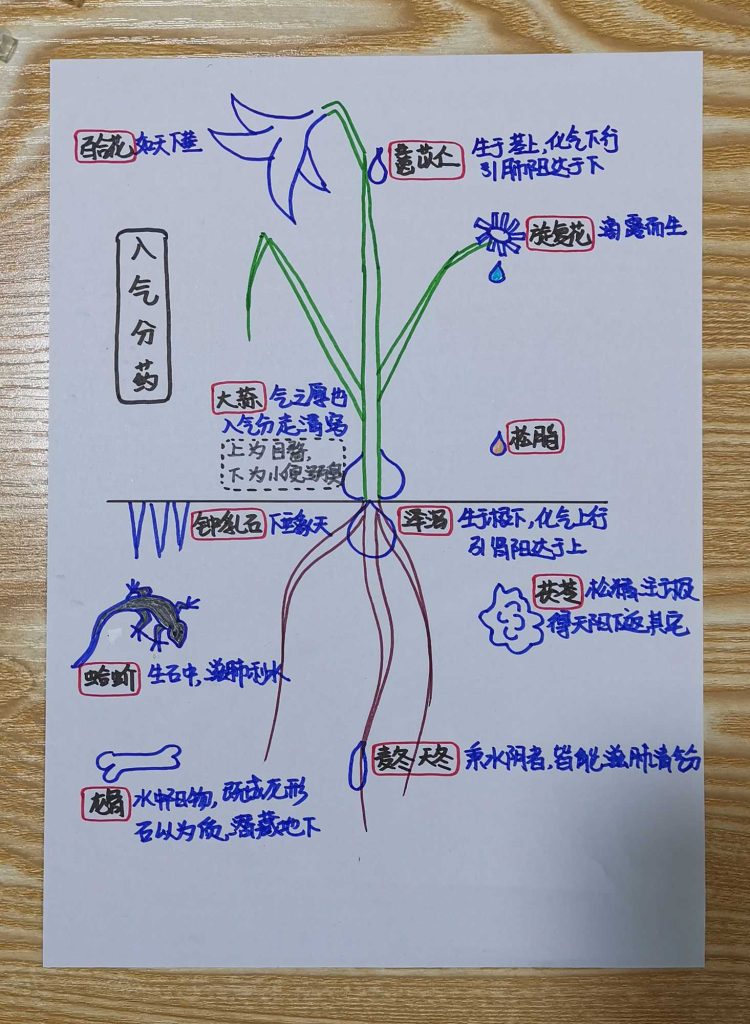 百合花 如天下垂
薏苡仁 生于茎上,化气下行
引肺阳达于下
旋复花 滴露而生
入气分药
大蒜 气之厚也
入气分走清窍
上为目瞀,
下为小便
松脂
钟乳石 下垂象天
泽泻 生于根下,化气上行
引肾阳达于上
茯苓 松精生于根
得天阳下返其宅
蛤蚧 生石中,滋肺利水
麦冬 天冬 秉水阴者,皆能滋肺清气分
龙骨 水中阳物,既成龙形
石以为质,潜藏地下